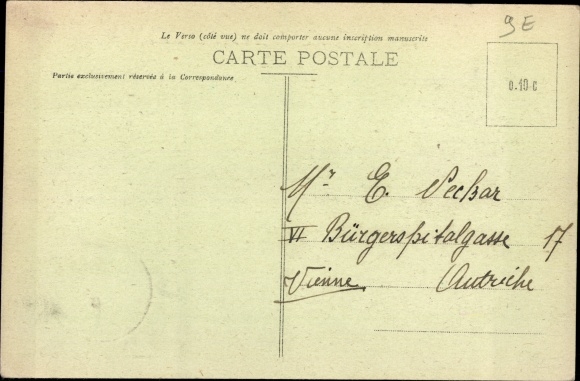 9E
Le Verso (côté vue) ne doit comporter aucune inscription manuscrite
CARTE POSTALE
Partie exclusivement réservée à la Correspondance
0.10 c
Mr E. Peckar
VI Bürgerspitalgasse 17
Vienne Autriche